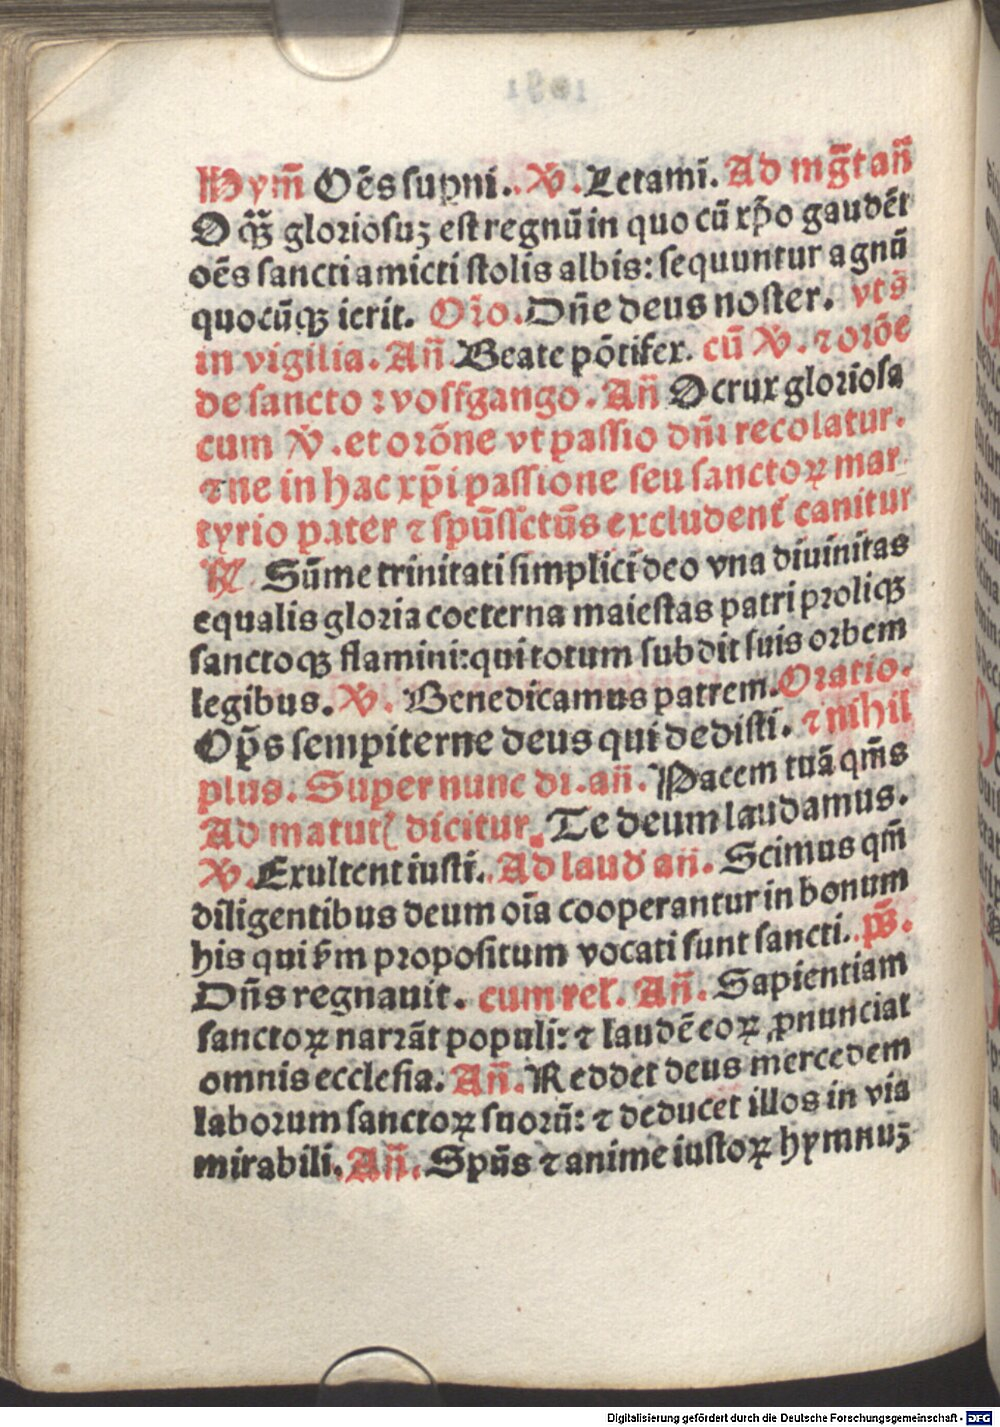 Hym̄ Oēs suꝑni. ℣. Letamī. Ad mg̅t an̄
O qꝫ̄ gloriosuꝫ est regnū in quo cū xp̄o gaudēt
oēs sancti amicti stolis albis: sequuntur agnū
quocūqꝫ ierit. Or̄o. Dn̄e deus noster. vts̄
in vigilia. An̄ Beate pōtifex. cū ℣. ⁊ orōe
de sancto vvolfgango. An̄ O crux gloriosa
cum ℣. et orōne vt passio dn̄i recolatur.
⁊ne in hac xp̄i passione seu sanctoꝝ mar
tyrio pater ⁊ spūssctūs excludent̄ canitur
℟ Sūme trinitati simplici deo vna diuinitas
equalis gloria coeterna maiestas patri proliqꝫ
sanctoqꝫ flamini: qui totum subdit suis orbem
legibus. ℣. Benedicamus patrem. Oratio.
Op̄s sempiterne deus qui dedisti. ⁊ nihil
plus. Super nunc di. an̄. Pacem tuā qm̄s
Ad matut̄ dicitur. Te deum laudamus.
℣. Exultent iusti. Ad laud̄ an̄. Scimus qm̄
diligentibus deum oīa cooperantur in bonum
his qui s̄m propositum vocati sunt sancti. ps̄.
Dn̄s regnauit. cum rel̄. An̄. Sapientiam
sanctoꝝ narrāt populi: ⁊ laudē eoꝝ ꝓnunciat
omnis ecclesia. An̄. Reddet deus mercedem
laborum sanctoꝝ suorū: ⁊ deducet illos in via
mirabili. An̄. Spūs ⁊ anime iustoꝝ hymnuꝫ
Digitalisierung gefördert durch die Deutsche Forschungsgemeinschaft - DFG